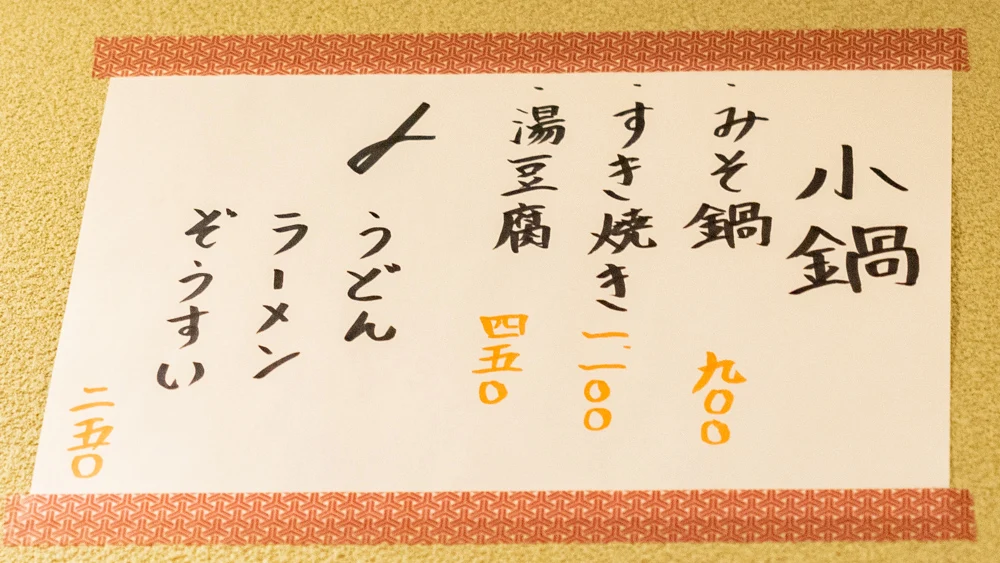 小鍋
・みそ鍋 九〇〇
・すき焼き 一、一〇〇
・湯豆腐 四五〇
〆 うどん
ラーメン
ぞうすい
二五〇